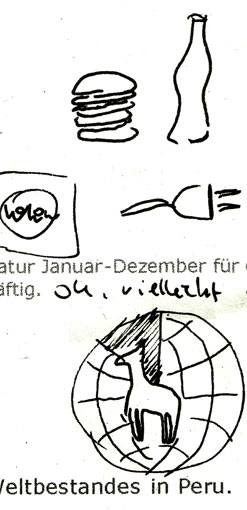 atur Januar-Dezember für
äftig. oh, vielleicht
Weltbestandes in Peru.